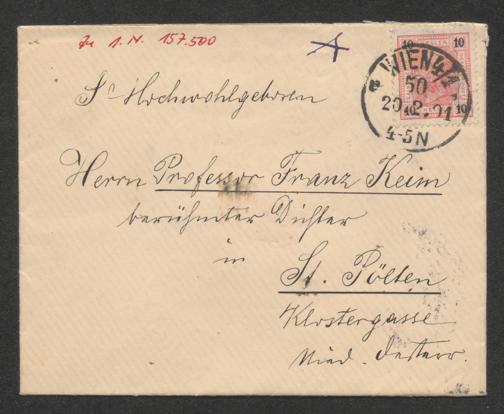 Zu I. N. 157.500
A
10 10
WIEN 4/1
50
20.2.01
4-5N
10
Sr Hochwohlgeboren
Herrn Professor Franz Keim
berühmter Dichter
in
St. Pölten
Klostergasse
Nied. Oesterr.